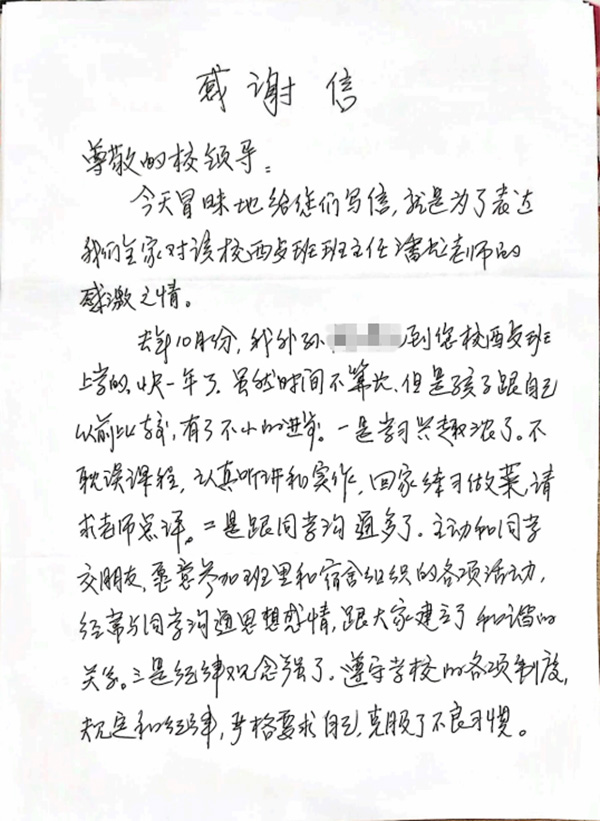 感谢信
尊敬的校领导:
今天冒昧地给您们写信,就是为了表达
我们全家对该校西点班班主任潘龙老师的
感激之情。
去年10月份,我外孙到您校西点班
上学的,快一年了。虽然时间不算长,但是孩子跟自己
以前比较,有了不小的进步。一是学习兴趣浓了。不
耽误课程,认真听讲和实作,回家练习做菜,请
求老师点评。二是跟同学沟通多了。主动和同学
交朋友,愿意参加班里和宿舍组织的各项活动,
经常与同学沟通思想感情,跟大家建立了和谐的
关系。三是纪律观念强了。遵守学校的各项制度,
规定和纪律,严格要求自己,克服了不良习惯。